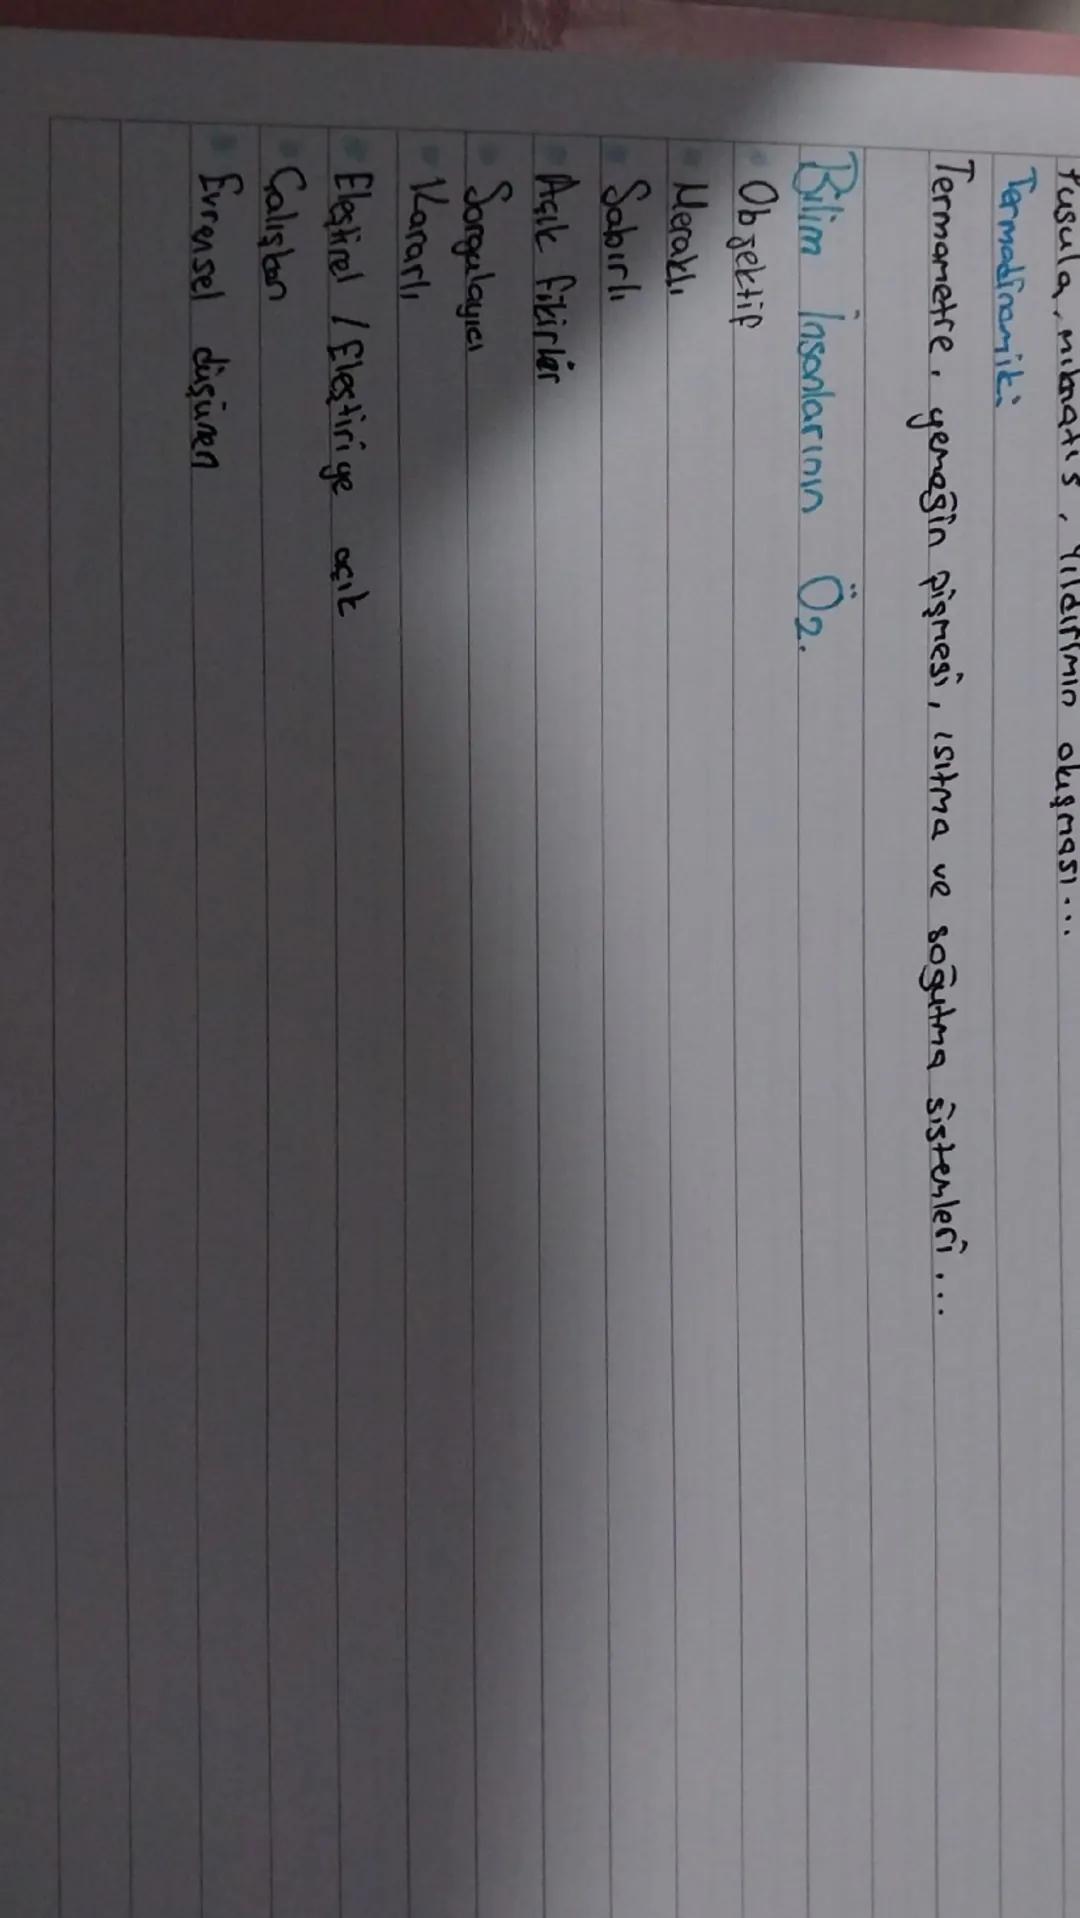 Pusula, mıknatıs, yıldırımın oluşması...
Termodinamik:
Termometre, yemeğin pişmesi, ısıtma ve soğutma sistemleri...
Bilim İnsanlarının Öz.
Objektif
Meraklı
Sabırlı
Açık fikirler
Sorgulayıcı
Kararlı
Eleştirel / Eleştiriye açık
Çalışkan
Evrensel düşünen